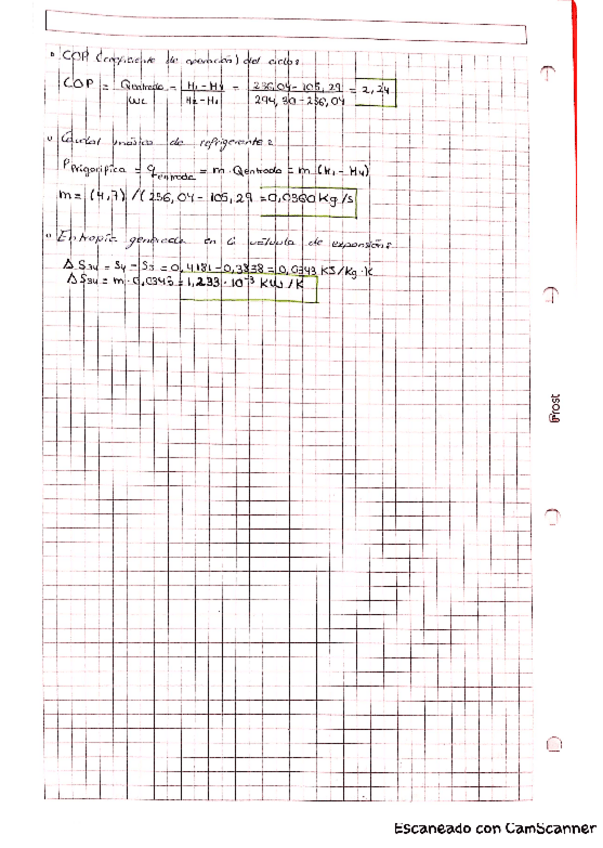 • COP (coeficiente de operación) del ciclo:
COP = Qentrada / Wc = H1 - H4 / H2 - H1 = 236,04 - 105,29 / 294,30 - 236,04 = 2,24
• Caudal másico de refrigerante:
P frigorífica = q entrada = m · Qentrada = m (h1 - H4)
m = (4,7) / (236,04 - 105,29 = 0,0360 Kg/s
• Entropía generada en la válvula de expansión:
Δ S34 = S4 - S3 = 0,4181 - 0,3838 = 0,0343 KJ/Kg·K
Δ S34 = m · 0,0343 = 1,233 · 10⁻³ KW/K
Prost
Escaneado con CamScanner